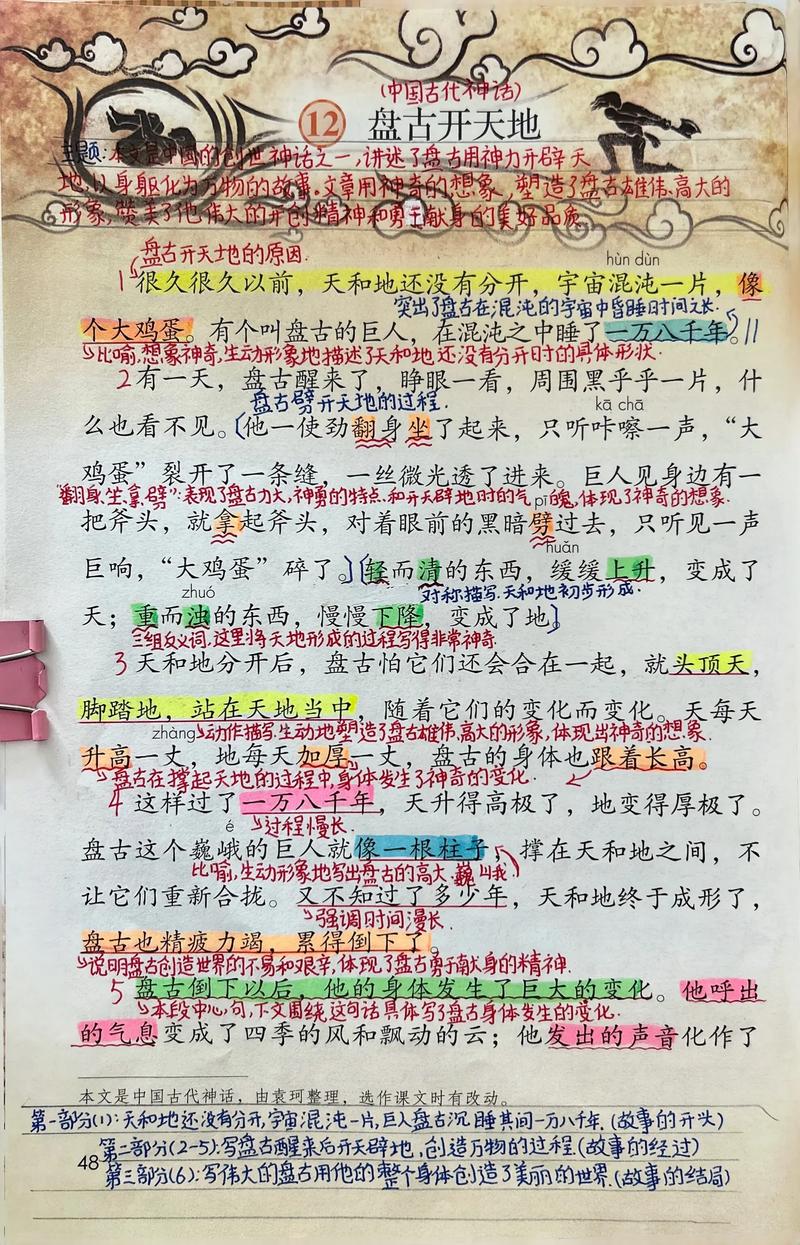 (中国古代神话)
12 盘古开天地
主题:本文是中国的创世神话之一,讲述了盘古用神力开辟天
地,以身躯化为万物的故事.文章用神奇的想象,塑造了盘古雄伟、高大的
形象,赞美了他伟大的开创精神和勇于献身的美好品质
盘古开天地的原因.
hùn dùn
1 很久很久以前,天和地还没有分开,宇宙混沌一片,像
突出了盘古在混沌的宇宙中昏睡时间之长.
个大鸡蛋。有个叫盘古的巨人,在混沌之中睡了一万八千年。//
比喻,想象神奇,生动形象地描述了天和地还没有分开时的具体形状.
2 有一天,盘古醒来了,睁眼一看,周围黑乎乎一片,什
盘古劈开天地的过程.
kā chā
么也看不见。[他一使劲翻身坐了起来,只听咔嚓一声,“大
鸡蛋”裂开了一条缝,一丝微光透了进来。巨人见身边有一
“翻身、坐、拿、劈”:表现了盘古力大,神勇的特点.和开天辟地时的气魄,体现了神奇的想象.
pī
把斧头,就拿起斧头,对着眼前的黑暗劈过去,只听见一声
huǎn
巨响,“大鸡蛋”碎了。][轻而清的东西,缓缓上升,变成了
zhuó
对称描写.天和地初步形成.
天;重而浊的东西,慢慢下降,变成了地]
三组反义词.这里将天地形成的过程写得非常神奇.
3 天和地分开后,盘古怕它们还会合在一起,就头顶天,
脚踏地,站在天地当中,随着它们的变化而变化。天每天
zhàng
动作描写.生动地塑造了盘古雄伟、高大的形象,体现出神奇的想象.
升高一丈,地每天加厚一丈,盘古的身体也跟着长高。
盘古在撑起天地的过程中,身体发生了神奇的变化.
4 这样过了一万八千年,天升得高极了,地变得厚极了。
é
过程慢长.
盘古这个巍峨的巨人就像一根柱子,撑在天和地之间,不
比喻,生动形象地写出盘古的高大、巍峨.
让它们重新合拢。又不知过了多少年,天和地终于成形了,
强调时间漫长.
盘古也精疲力竭,累得倒下了。
说明盘古创造世界的不易和艰辛,体现了盘古勇于献身的精神.
5 盘古倒下以后,他的身体发生了巨大的变化。他呼出
本段中心句,下文围绕这句话具体写了盘古身体发生的变化.
的气息变成了四季的风和飘动的云;他发出的声音化作了
本文是中国古代神话,由袁珂整理,选作课文时有改动。
第一部分(1):天和地还没有分开,宇宙混沌一片,巨人盘古沉睡其间一万八千年.(故事的开头)
第二部分(2-5):写盘古醒来后开天辟地,创造万物的过程.(故事的经过)
48
第三部分(6):写伟大的盘古用他的整个身体创造了美丽的世界.(故事的结局)